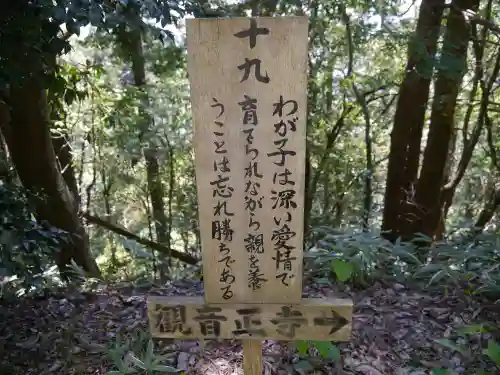 十九
わが子は深い愛情で
育てられながら親を養
うことは忘れ勝である
観音正寺→